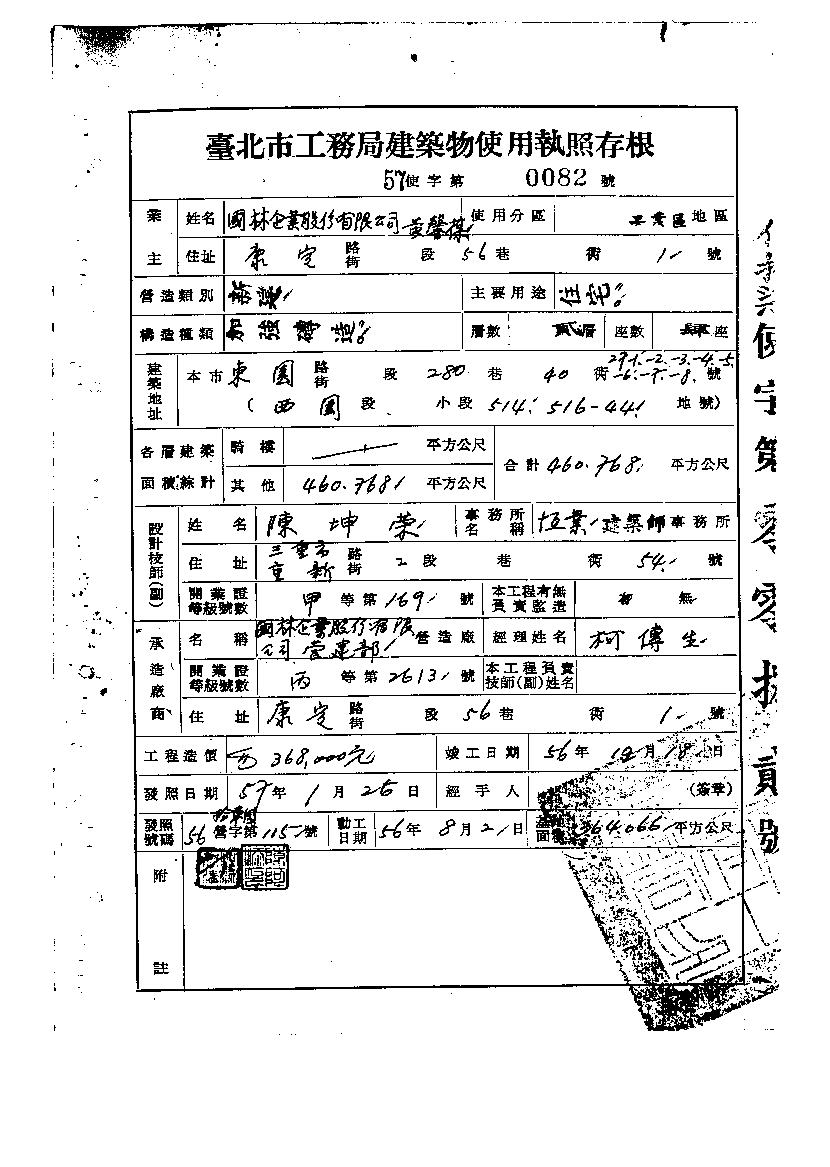 臺北市工務局建築物使用執照存根
57使字第 0082 號
業主 姓名 國林企業股份有限公司 使用分區 工業區地區
住址 康定 路街 段 56巷 街 1 號
營造類別 新築 主要用途 住宅
構造種類 加強磚造 層數 貳層 座數 座
建築地址 本市東園 路街 段 280 巷 40 街 29-1.-2.-3.-4.-5.-6.-7.-8. 號
(西園段 小段 514. 516-44 地號)
各層建築面積綜計 騎樓 平方公尺 合計460.768 平方公尺
其他 460.768 平方公尺
設計技師(副) 姓名 陳坤榮 事務所名稱 恒業建築師事務所
住址 三重市重新 路街 2段 巷 街 54 號
開業證等級號數 甲等第169號 本工程有無負責監造 無
承造廠商 名稱 國林企業股份有限公司營建部 營造廠 經理姓名 柯傳生
開業證等級號數 丙等第2613號 本工程負責技師(副)姓名
住址 康定 路街 段 56巷 街 1 號
工程造價 368,000元 竣工日期 56年12月18日
發照日期 57年1月25日 經手人 (簽章)
發照號碼 56 營字第115號 動工日期 56年8月2日 面積 364.066 平方公尺
附註
使字第零零捌貳號